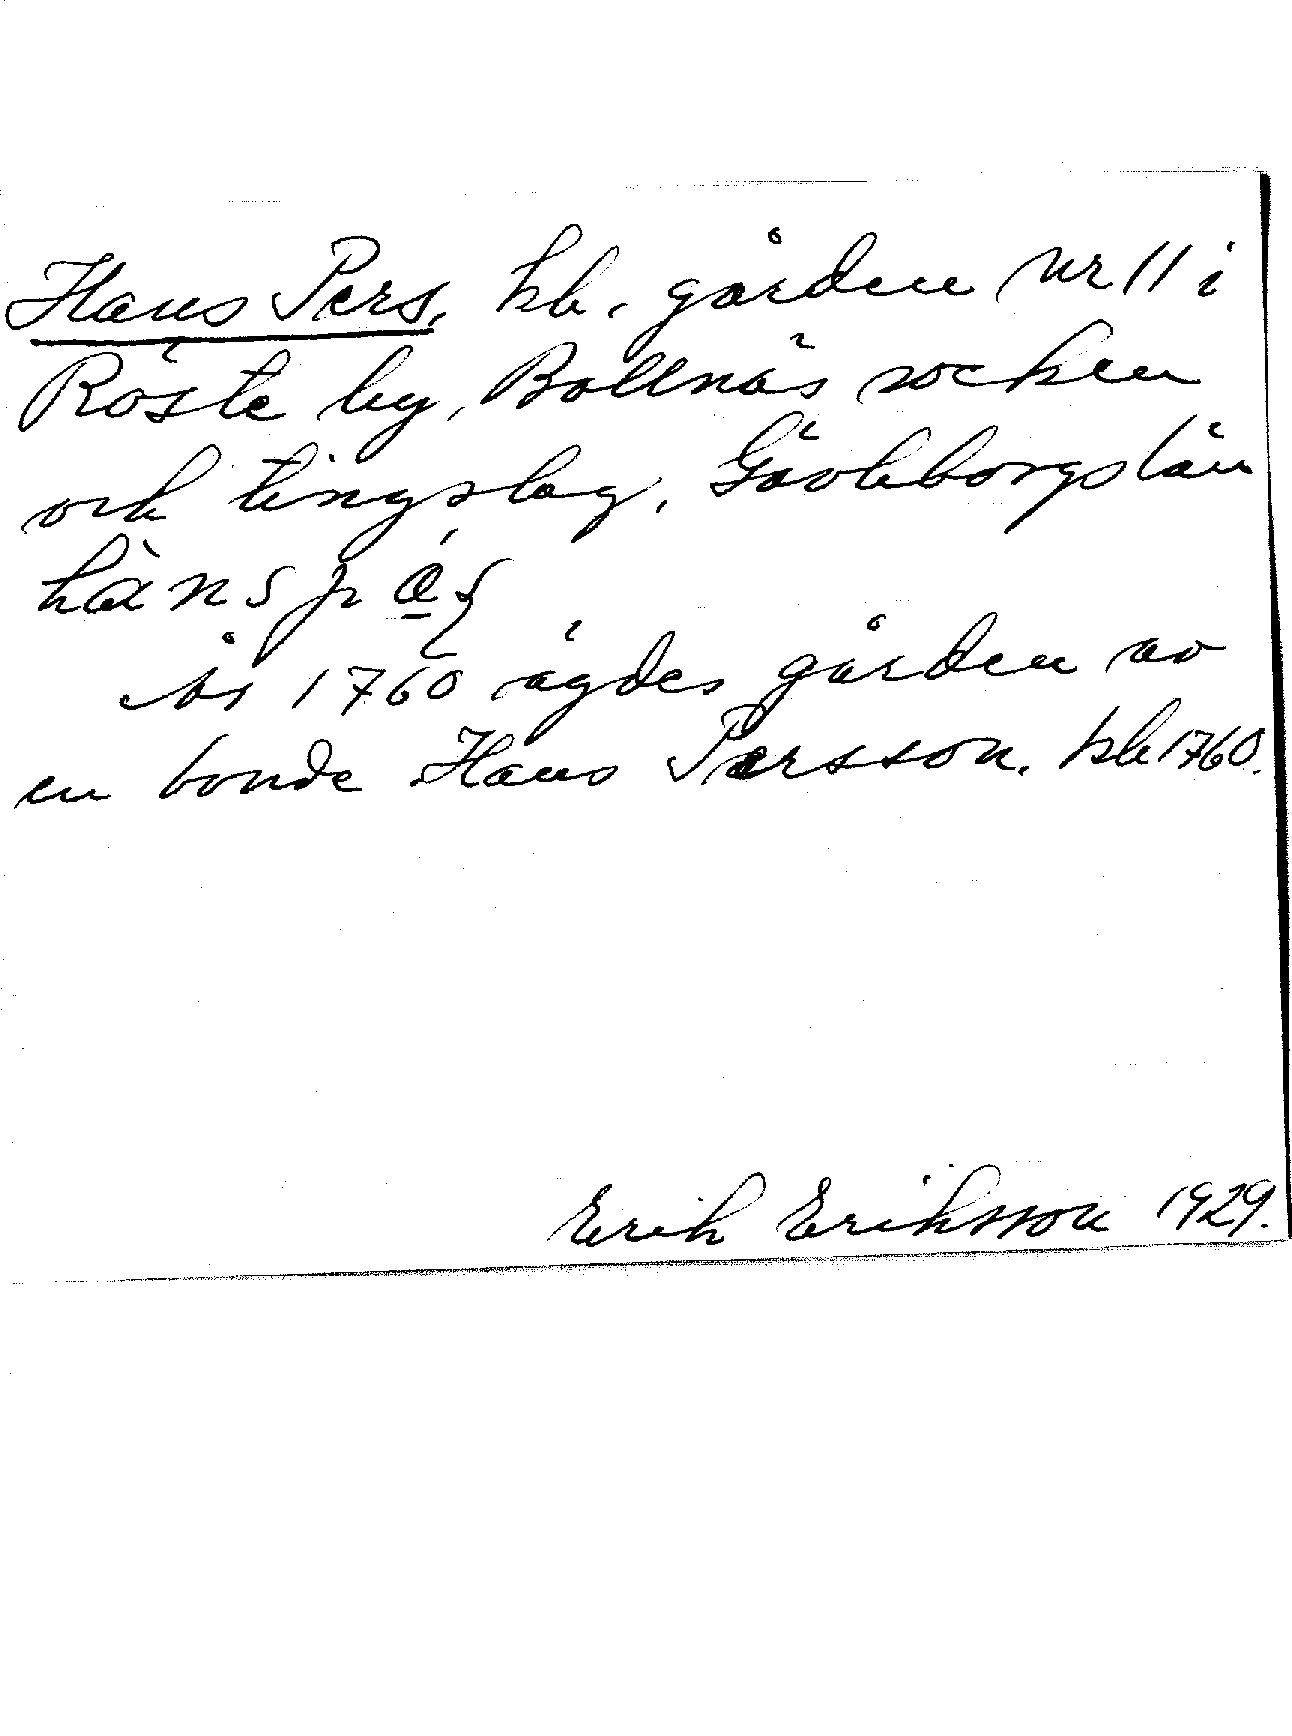 Hans Pers, kb. gården nr 11 i
Röste by, Bollnäs socken
och tingslag, Gävleborgs län
År 1760 ägdes gården av
en bonde Hans Persson. kb 1760.
Erik Eriksson 1929.